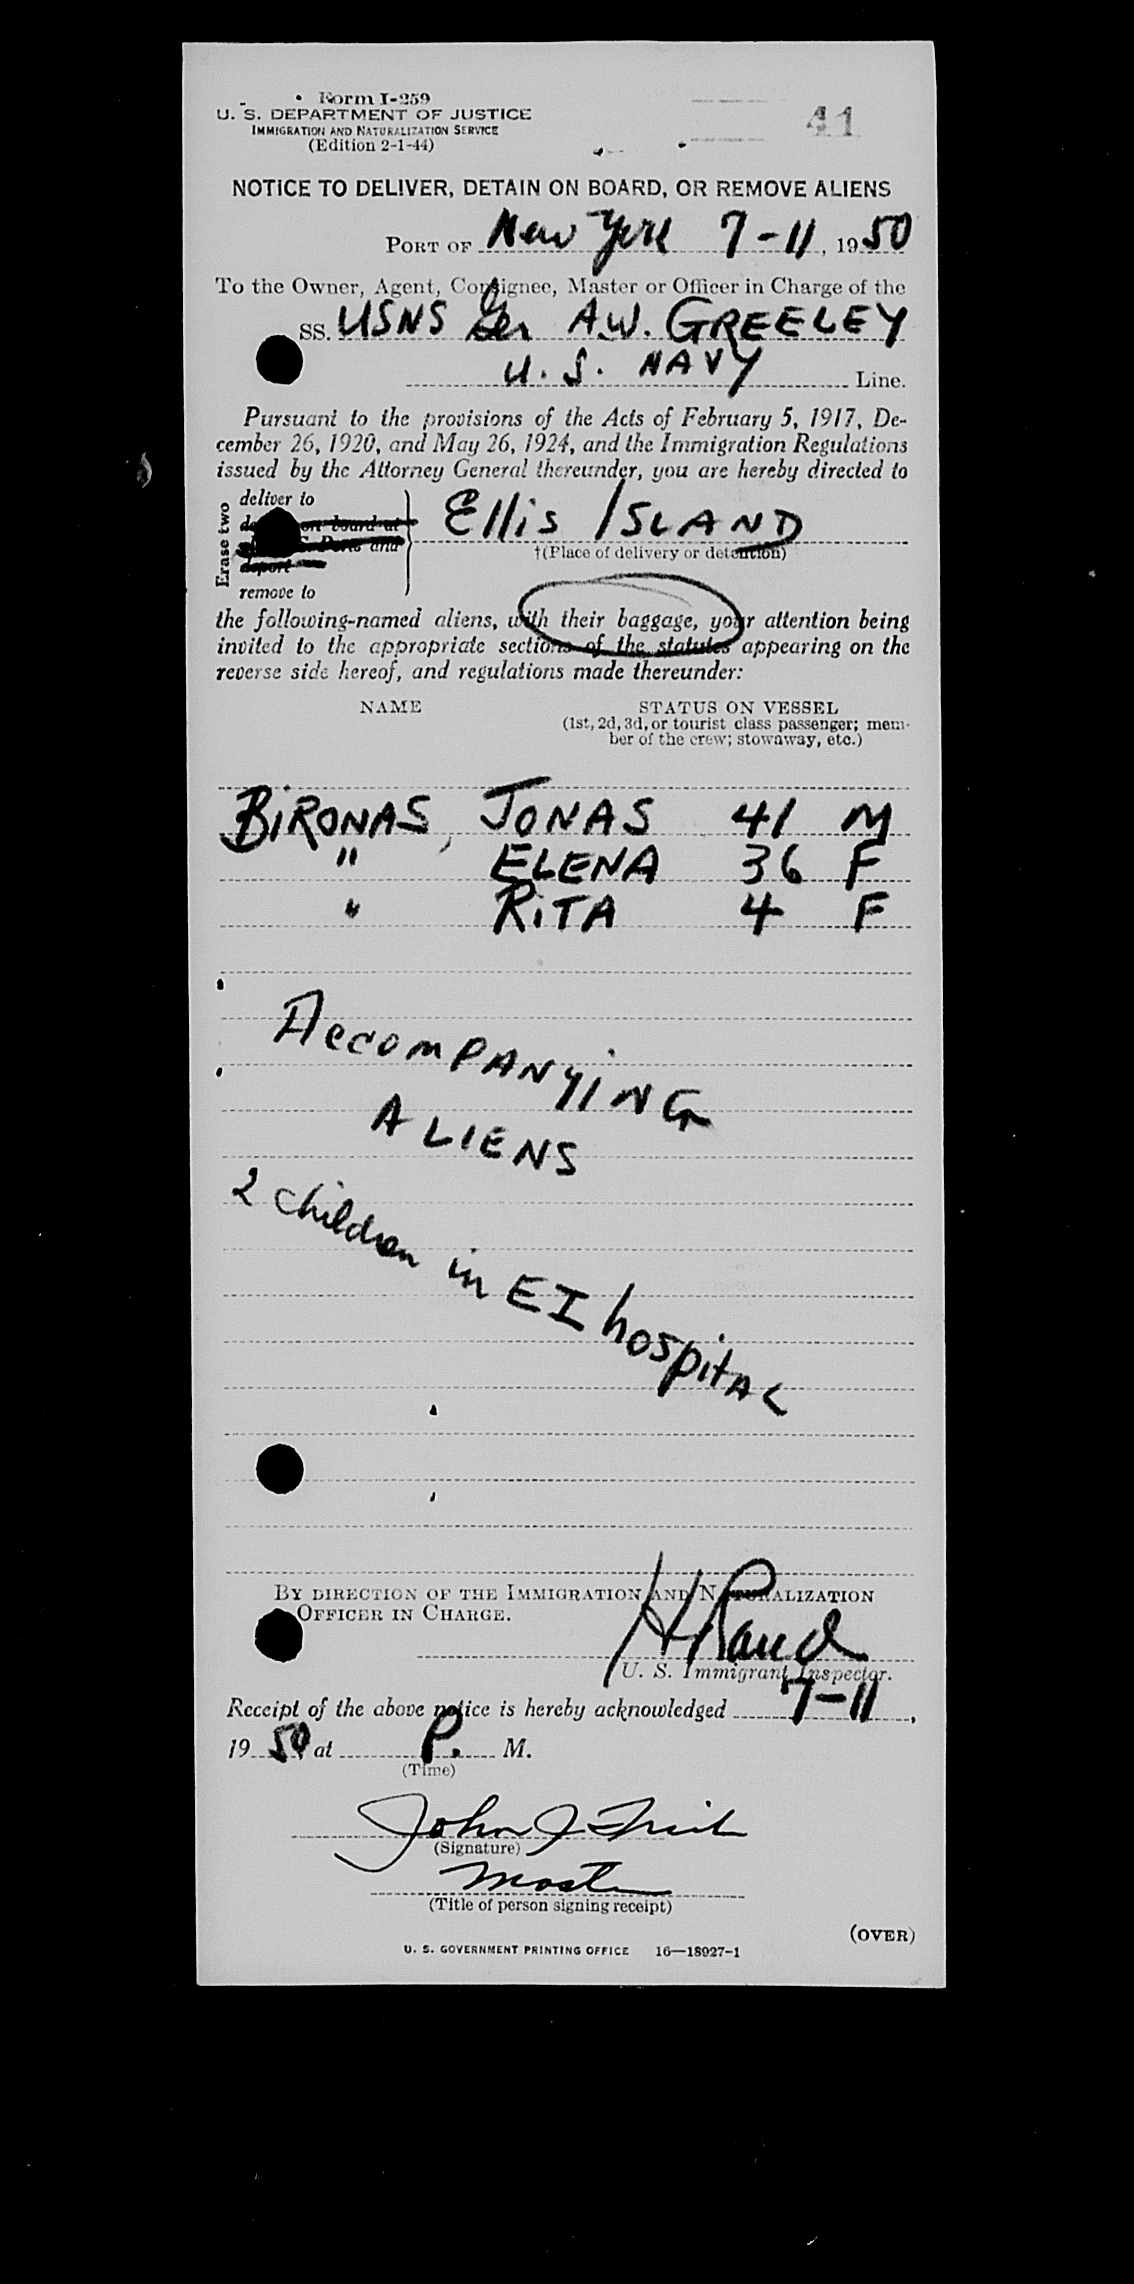 Form I-259
U. S. DEPARTMENT OF JUSTICE
IMMIGRATION AND NATURALIZATION SERVICE
(Edition 2-1-44)
41
NOTICE TO DELIVER, DETAIN ON BOARD, OR REMOVE ALIENS
PORT OF New York 7-11, 1950
To the Owner, Agent, Consignee, Master or Officer in Charge of the
SS. USNS Gen A.W. GREELEY
U. S. NAVY Line.
Pursuant to the provisions of the Acts of February 5, 1917, De-
cember 26, 1920, and May 26, 1924, and the Immigration Regulations
issued by the Attorney General thereunder, you are hereby directed to
Erase two
deliver to
on board at
and
deport
remove to
Ellis ISLAND
†(Place of delivery or detention)
the following-named aliens, with their baggage, your attention being
invited to the appropriate sections of the statutes appearing on the
reverse side hereof, and regulations made thereunder:
NAME STATUS ON VESSEL
(1st, 2d, 3d, or tourist class passenger; mem-
ber of the crew; stowaway, etc.)
BIRONAS, JONAS 41 M
" ELENA 36 F
" RITA 4 F
ACCOMPANYING
ALIENS
2 children in EI hospital
BY DIRECTION OF THE IMMIGRATION AND NATURALIZATION
OFFICER IN CHARGE.
H Rand
U. S. Immigrant Inspector.
Receipt of the above notice is hereby acknowledged 7-11,
1950 at P. M.
(Time)
John J
(Signature)
Master
(Title of person signing receipt)
(OVER)
U. S. GOVERNMENT PRINTING OFFICE 16—18927-1